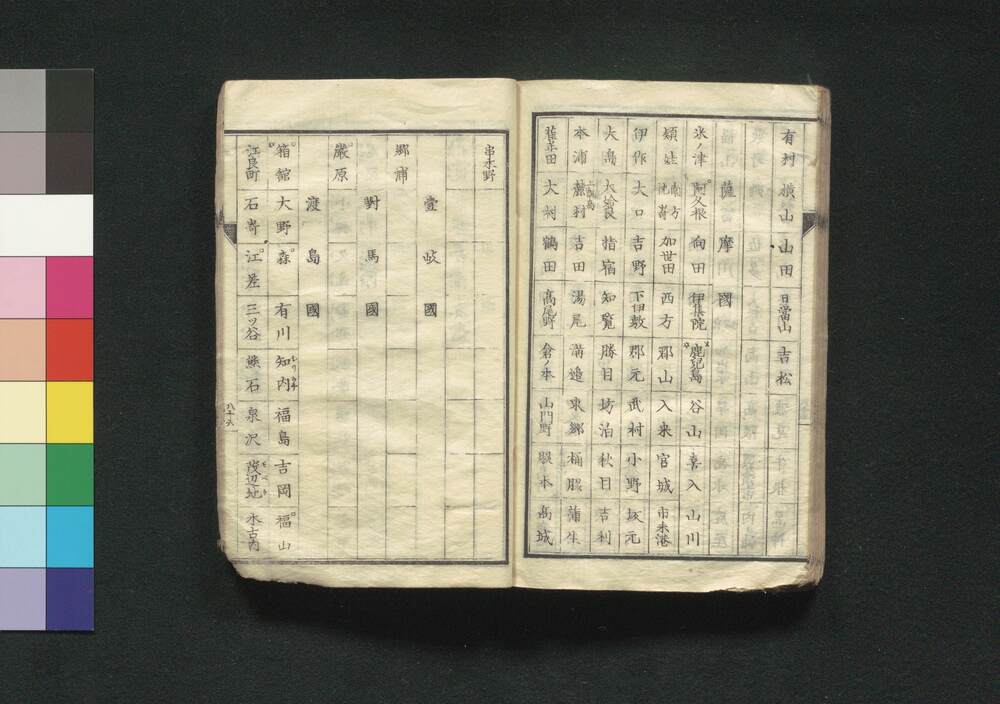 有村 横山 山田 日當山 吉松
薩摩國
米ノ津 阿久根 向田 伊集院 鹿児島 谷山 喜入 山川
頴娃 加世田 西方 郡山 入来 宮城 市来港
伊作 大口 吉野 下伊敷 郡元 武村 小野 坂元
大島 大姶良 指宿 知覧 勝目 坊泊 秋目 吉利
本浦 藤村 吉田 湯尾 溝邉 東郷 桶脇 蒲生
大村 鶴田 高尾野 倉ノ本 山門野 脇本 高城
串木野
壹岐國
郷浦
對馬國
厳原
渡島國
箱館 大野 森 有川 知内 福島 吉岡 福山
江良町 石嵜 江差 三ツ谷 熊石 泉沢 木古内
八十六